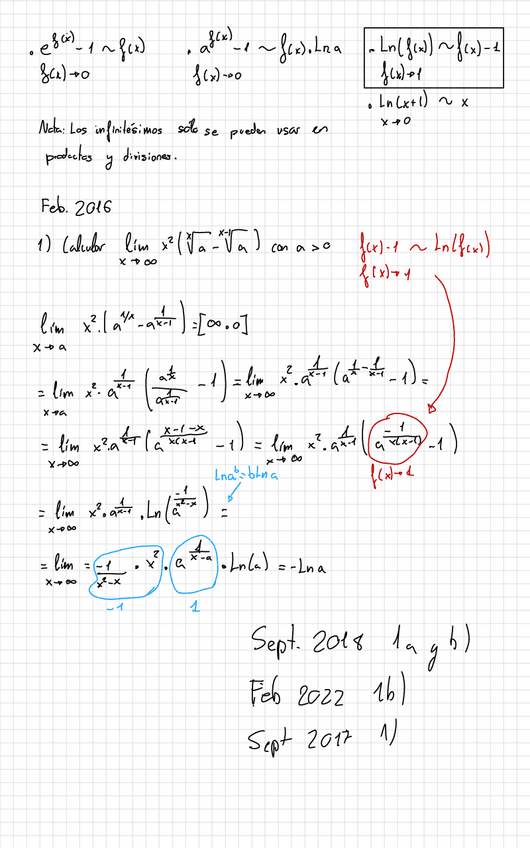 . e^{f(x)} - 1 ~ f(x)   . a^{f(x)} - 1 ~ f(x) . Ln a   . Ln(f(x)) ~ f(x) - 1
f(x) → 0   f(x) → 0   f(x) → 1
. Ln(x+1) ~ x
x → 0
Nota: Los infinitésimos sólo se pueden usar en
productos y divisiones.
Feb. 2016
1) Calcular lim x² (\sqrt[x]{a} - \sqrt[x-1]{a}) con a > 0   f(x) - 1 ~ Ln(f(x))
x → ∞   f(x) → 1
lim x² . (a^{1/x} - a^{\frac{1}{x-1}}) = [∞ . 0]
x → a
= lim x² . a^{\frac{1}{x-1}} (\frac{a^{\frac{1}{x}}}{a^{\frac{1}{x-1}}} - 1) = lim x² . a^{\frac{1}{x-1}} (a^{\frac{1}{x} - \frac{1}{x-1}} - 1) =
x → a   x → ∞
= lim x² . a^{\frac{1}{x-1}} (a^{\frac{x-1-x}{x(x-1)}} - 1) = lim x² . a^{\frac{1}{x-1}} (a^{\frac{-1}{x(x-1)}} - 1)
x → ∞   x → ∞
f(x) → 1
Ln a^b = b Ln a
= lim x² . a^{\frac{1}{x-1}} . Ln(a^{\frac{-1}{x²-x}}) =
x → ∞
= lim = \frac{-1}{x²-x} . x² . a^{\frac{1}{x-a}} . Ln(a) = -Ln a
x → ∞
-1   1
Sept. 2018 1a y b)
Feb 2022 1b)
Sept 2017 1)